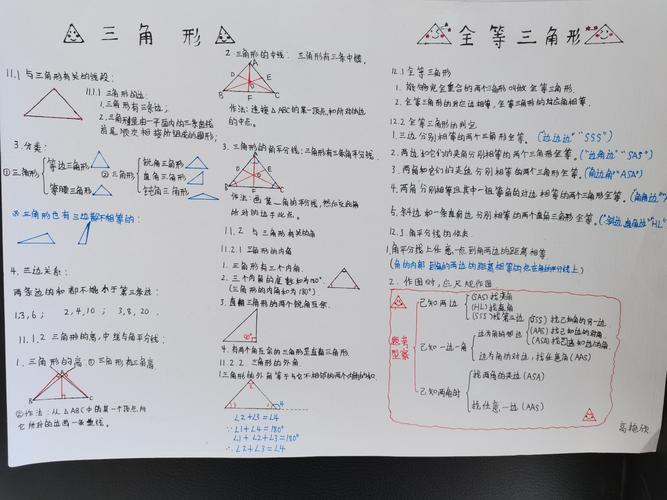 三角形
11.1 与三角形有关的线段:
11.1.1 三角形的边:
1.三角形有三条边;
首尾顺次相接所组成的图形;
3.分类:
①三角形
等边三角形
等腰三角形
②三角形
锐角三角形
直角三角形
钝角三角形
③三角形也有三边都不相等的:
4.三边关系:
两条边的和都不能小于第三条边:
1,3,6; 2,4,10; 3,8,20.
11.1.2 三角形的高,中线与角平分线:
1.三角形的高:①三角形有三高.
A
B
C
②作法:从△ABC中的某一个顶点,向
它所对的边画一条垂线.
2.三角形的中线: 三角形有三条中线.
A
D
E
O
B
F
C
作法:连接△ABC的某一顶点和所对的边
的中点.
3.三角形的角平分线:三角形有三条角平分线.
A
D
E
B
F
C
所对的边于此点.
11.2 与三角形有关的角
11.2.1 三角形的内角
1.三角形有三个内角.
2.三个内角的度数和为180°.
(三角形的内角和为180°)
3.直角三角形的两个锐角互余.
90°
4.有两个角互余的三角形是直角三角形.
11.2.2.三角形的外角.
1.三角形的外角等于与它不相邻的两个内角的和.
∠2+∠3=∠4
∵∠1+∠4=180°
∠1+∠2+∠3=180°
∴∠2+∠3=∠4
全等三角形
12.1 全等三角形
1.能够完全重合的两个三角形叫做全等三角形.
2.全等三角形的对应边相等,全等三角形的对应角相等.
12.2 全等三角形的判定
1.三边分别相等的两个三角形全等。("边边边""SSS")
2.两边和它们的夹角分别相等的两个三角形全等。("边角边""SAS")
3.两角和它们的夹边分别相等的两个三角形全等。(角边角"ASA")
4.两角分别相等且其中一组等角的对边相等的两个三角形全等。(角角边"
5.斜边和一条直角边分别相等的两个直角三角形全等。("斜边,直角边""HL"
12.3 角平分线的性质.
1.角平分线上任意一点到角两边的距离相等.
(角的内部到角的两边的距离相等的点在角的平分线上)
2.作图时,应尺规作图.
题考
型察
已知两边
(SAS)找夹角
(HL)找直角
(SSS)找第三边
已知一边一角
边为角的邻边
(AAS)找已知边的对角
边为角的对边,找任意角(AAS)
已知两角时
找两角的夹边(ASA)
找任意一边(AAS)